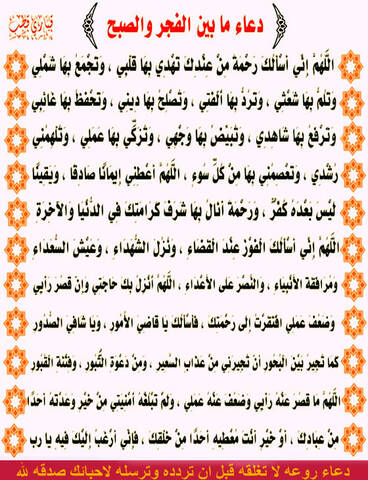 دعاء ما بين الفجر والصبح
اللَّهُمَّ إِنِّي أَسْأَلُكَ رَحْمَةً مِنْ عِنْدِكَ تَهْدِي بِهَا قَلْبِي ، وَتَجْمَعُ بِهَا شَمْلِي
وَتَلُمُّ بِهَا شَعْثِي ، وَتَرُدُّ بِهَا أُلْفَتِي ، وَتُصْلِحُ بِهَا دِينِي ، وَتَحْفَظُ بِهَا غَائِبِي
وَتَرْفَعُ بِهَا شَاهِدِي ، وَتُبَيِّضُ بِهَا وَجْهِي ، وَتُزَكِّي بِهَا عَمَلِي ، وَتُلْهِمُنِي
رُشْدِي ، وَتَعْصِمُنِي بِهَا مِنْ كُلِّ سُوءٍ ، اللَّهُمَّ أَعْطِنِي إِيمَانًا صَادِقًا ، وَيَقِينًا
لَيْسَ بَعْدَهُ كُفْرٌ ، وَرَحْمَةً أَنَالُ بِهَا شَرَفَ كَرَامَتِكَ فِي الدُّنْيَا وَالْآخِرَةِ
اللَّهُمَّ إِنِّي أَسْأَلُكَ الْفَوْزَ عِنْدَ الْقَضَاءِ ، وَنُزُلَ الشُّهَدَاءِ ، وَعَيْشَ السُّعَدَاءِ
وَمُرَافَقَةَ الْأَنْبِيَاءِ ، وَالنَّصْرَ عَلَى الْأَعْدَاءِ ، اللَّهُمَّ أُنْزِلُ بِكَ حَاجَتِي وَإِنْ قَصُرَ رَأْيِي
وَضَعُفَ عَمَلِي افْتَقَرْتُ إِلَى رَحْمَتِكَ ، فَأَسْأَلُكَ يَا قَاضِيَ الْأُمُورِ ، وَيَا شَافِيَ الصُّدُورِ
كَمَا تُجِيرُ بَيْنَ الْبُحُورِ أَنْ تُجِيرَنِي مِنْ عَذَابِ السَّعِيرِ ، وَمِنْ دَعْوَةِ الثُّبُورِ ، وَفِتْنَةِ الْقُبُورِ
اللَّهُمَّ مَا قَصُرَ عَنْهُ رَأْيِي وَضَعُفَ عَنْهُ عَمَلِي ، وَلَمْ تَبْلُغْهُ أُمْنِيَّتِي مِنْ خَيْرٍ وَعَدْتَهُ أَحَدًا
مِنْ عِبَادِكَ ، أَوْ خَيْرٍ أَنْتَ مُعْطِيهِ أَحَدًا مِنْ خَلْقِكَ ، فَإِنِّي أَرْغَبُ إِلَيْكَ فِيهِ يَا رب
دعاء روعه لا تغلقه قبل ان تردده وترسله لاحبائك صدقه لله